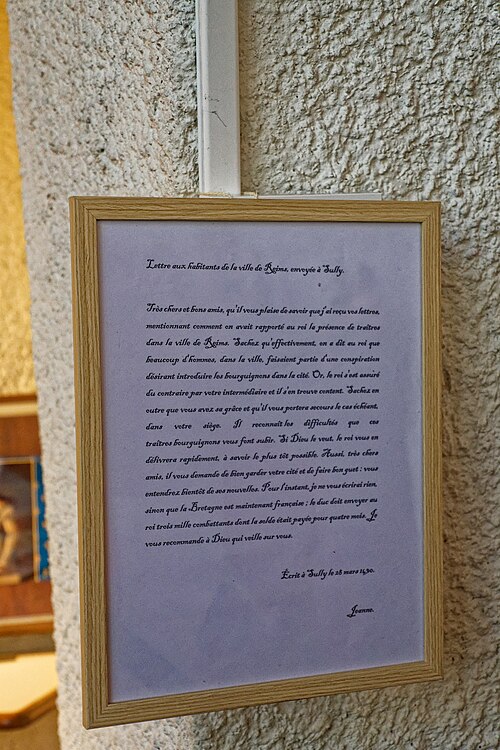 Lettre aux habitants de la ville de Reims, envoyée à Sully.
Très chers et bons amis, qu'il vous plaise de savoir que j'ai reçu vos lettres,
mentionnant comment on avait rapporté au roi la présence de traîtres
dans la ville de Reims. Sachez qu'effectivement, on a dit au roi que
beaucoup d'hommes, dans la ville, faisaient partie d'une conspiration
désirant introduire les bourguignons dans la cité. Or, le roi s'est assuré
du contraire par votre intermédiaire et il s'en trouve content. Sachez en
outre que vous avez sa grâce et qu'il vous portera secours le cas échéant,
dans votre siège. Il reconnaît les difficultés que ces
traîtres bourguignons vous font subir. Si Dieu le veut, le roi vous en
délivrera rapidement, à savoir le plus tôt possible. Aussi, très chers
amis, il vous demande de bien garder votre cité et de faire bon guet : vous
entendrez bientôt de ses nouvelles. Pour l'instant, je ne vous écrirai rien,
sinon que la Bretagne est maintenant française ; le duc doit envoyer au
roi trois mille combattants dont la solde était payée pour quatre mois. Je
vous recommande à Dieu qui veille sur vous.
Écrit à Sully le 28 mars 1430.
Jeanne.